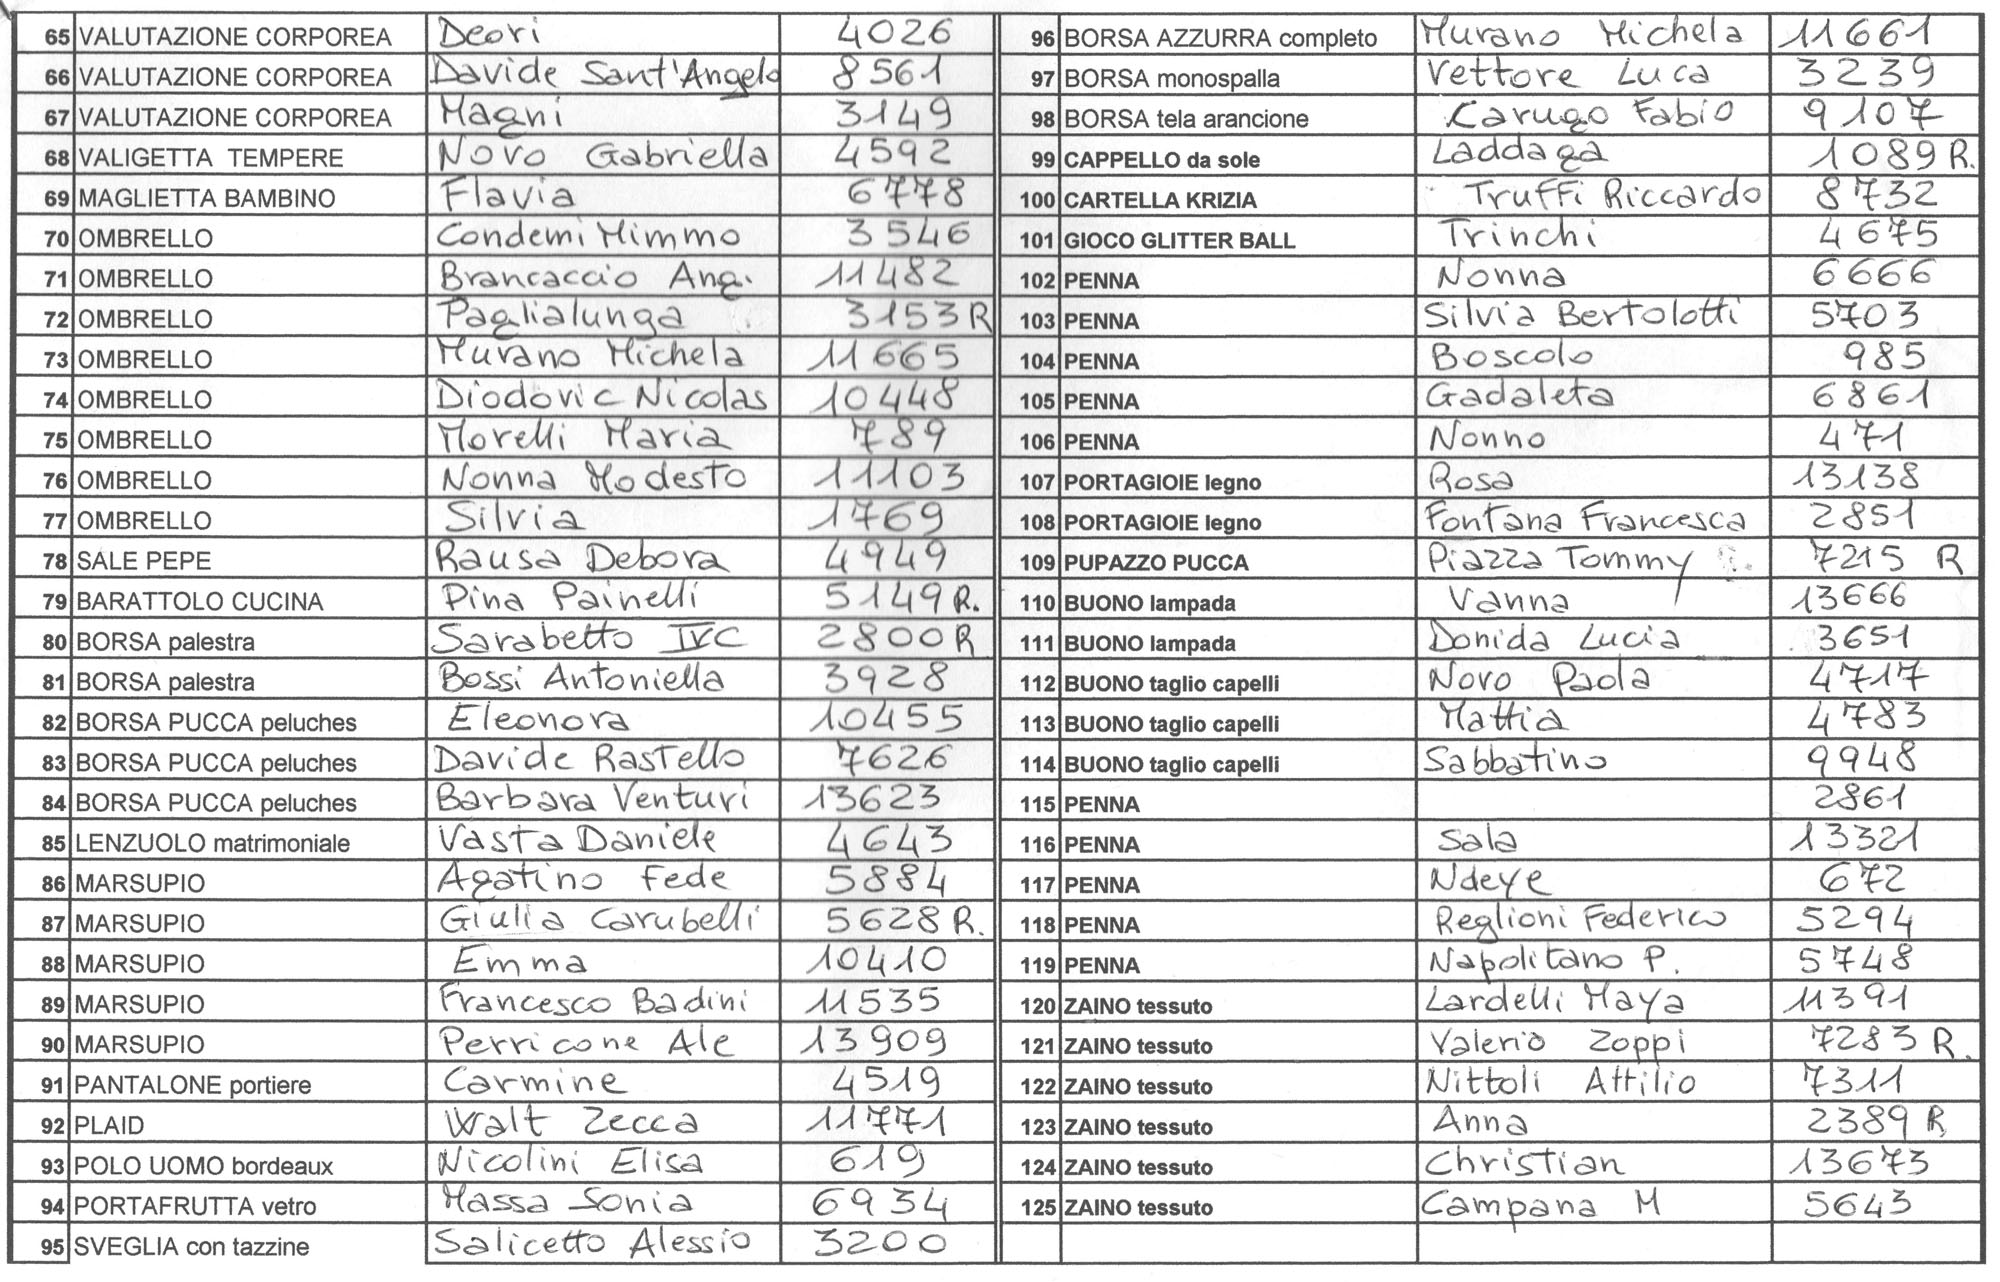 65 VALUTAZIONE CORPOREA Deori 4026
66 VALUTAZIONE CORPOREA Davide Sant'Angelo 8561
67 VALUTAZIONE CORPOREA Magni 3149
68 VALIGETTA TEMPERE Novo Gabriella 4592
69 MAGLIETTA BAMBINO Flavia 6778
70 OMBRELLO Condemi Mimmo 3546
71 OMBRELLO Brancaccio Ang. 11482
72 OMBRELLO Paglialunga 3153 R
73 OMBRELLO Murano Michela 11665
74 OMBRELLO Diodovic Nicolas 10448
75 OMBRELLO Morelli Maria 789
76 OMBRELLO Nonna Modesto 11103
77 OMBRELLO Silvia 1769
78 SALE PEPE Rausa Debora 4949
79 BARATTOLO CUCINA Pina Painelli 5149 R.
80 BORSA palestra Sarabetto IVC 2800 R
81 BORSA palestra Bossi Antoniella 3928
82 BORSA PUCCA peluches Eleonora 10455
83 BORSA PUCCA peluches Davide Rastello 7626
84 BORSA PUCCA peluches Barbara Venturi 13623
85 LENZUOLO matrimoniale Vasta Daniele 4643
86 MARSUPIO Agatino Fede 5884
87 MARSUPIO Giulia Carubelli 5628 R.
88 MARSUPIO Emma 10410
89 MARSUPIO Francesco Badini 11535
90 MARSUPIO Perricone Ale 13909
91 PANTALONE portiere Carmine 4519
92 PLAID Walt Zecca 11771
93 POLO UOMO bordeaux Nicolini Elisa 619
94 PORTAFRUTTA vetro Massa Sonia 6934
95 SVEGLIA con tazzine Salicetto Alessio 3200
96 BORSA AZZURRA completo Murano Michela 11661
97 BORSA monospalla Vettore Luca 3239
98 BORSA tela arancione Carugo Fabio 9107
99 CAPPELLO da sole Laddaga 1089 R.
100 CARTELLA KRIZIA Truffi Riccardo 8732
101 GIOCO GLITTER BALL Trinchi 4675
102 PENNA Nonna 6666
103 PENNA Silvia Bertolotti 5703
104 PENNA Boscolo 985
105 PENNA Gadaleta 6861
106 PENNA Nonno 471
107 PORTAGIOIE legno Rosa 13138
108 PORTAGIOIE legno Fontana Francesca 2851
109 PUPAZZO PUCCA Piazza Tommy 7215 R
110 BUONO lampada Vanna 13666
111 BUONO lampada Donida Lucia 3651
112 BUONO taglio capelli Novo Paola 4717
113 BUONO taglio capelli Mattia 4783
114 BUONO taglio capelli Sabbatino 9948
115 PENNA 2861
116 PENNA Sala 13321
117 PENNA Ndeye 672
118 PENNA Reglioni Federico 5294
119 PENNA Napolitano P. 5748
120 ZAINO tessuto Lardelli Maya 11391
121 ZAINO tessuto Valerio Zoppi 7283 R.
122 ZAINO tessuto Nittoli Attilio 7311
123 ZAINO tessuto Anna 2389 R
124 ZAINO tessuto Christian 13673
125 ZAINO tessuto Campana M 5643